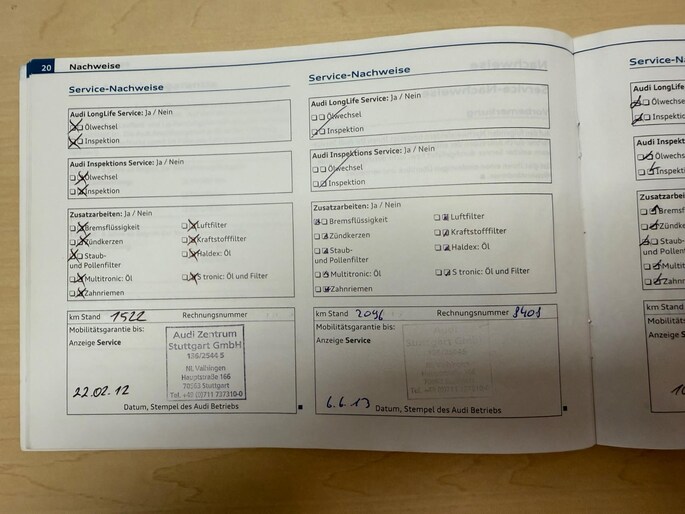 20 Nachweise
Service-Nachweise
Audi LongLife Service: Ja / Nein
Ölwechsel
Inspektion
Audi Inspektions Service: Ja / Nein
Ölwechsel
Inspektion
Zusatzarbeiten: Ja / Nein
Bremsflüssigkeit
Luftfilter
Zündkerzen
Kraftstofffilter
Staub-
und Pollenfilter
Haldex: Öl
Multitronic: Öl
S tronic: Öl und Filter
Zahnriemen
km Stand 1522 Rechnungsnummer
Mobilitätsgarantie bis:
Anzeige Service
Audi Zentrum
Stuttgart GmbH
NL Vaihingen
Hauptstraße 166
70563 Stuttgart
22.02.12
Datum, Stempel des Audi Betriebs
Service-Nachweise
Audi LongLife Service: Ja / Nein
Ölwechsel
Inspektion
Audi Inspektions Service: Ja / Nein
Ölwechsel
Inspektion
Zusatzarbeiten: Ja / Nein
Bremsflüssigkeit
Luftfilter
Zündkerzen
Kraftstofffilter
Staub-
und Pollenfilter
Haldex: Öl
Multitronic: Öl
S tronic: Öl und Filter
Zahnriemen
km Stand 2096 Rechnungsnummer 8408
Mobilitätsgarantie bis:
Anzeige Service
6.6.13
Datum, Stempel des Audi Betriebs
Service-N
Audi LongLif
Ölwechse
Inspektio
Audi Inspekt
Ölwechs
Inspekt
Zusatzarbei
Bremsf
Zündke
Staub-
und Pollenf
Multit
Zahnri
km Stand
Mobilitäts
Anzeige Se